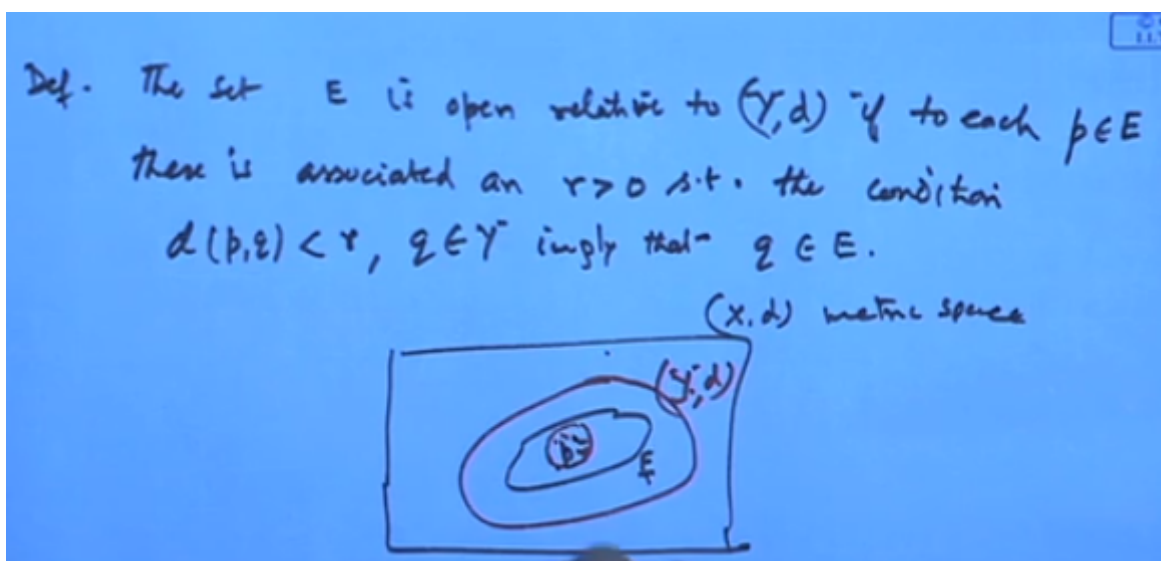 Def. The set E is open relative to (Y,d) if to each p∈E
there is associated an r>0 s.t. the condition
d(p,q)<r, q∈Y imply that q∈E.
(X,d) metric space
(Y,d)
p
E